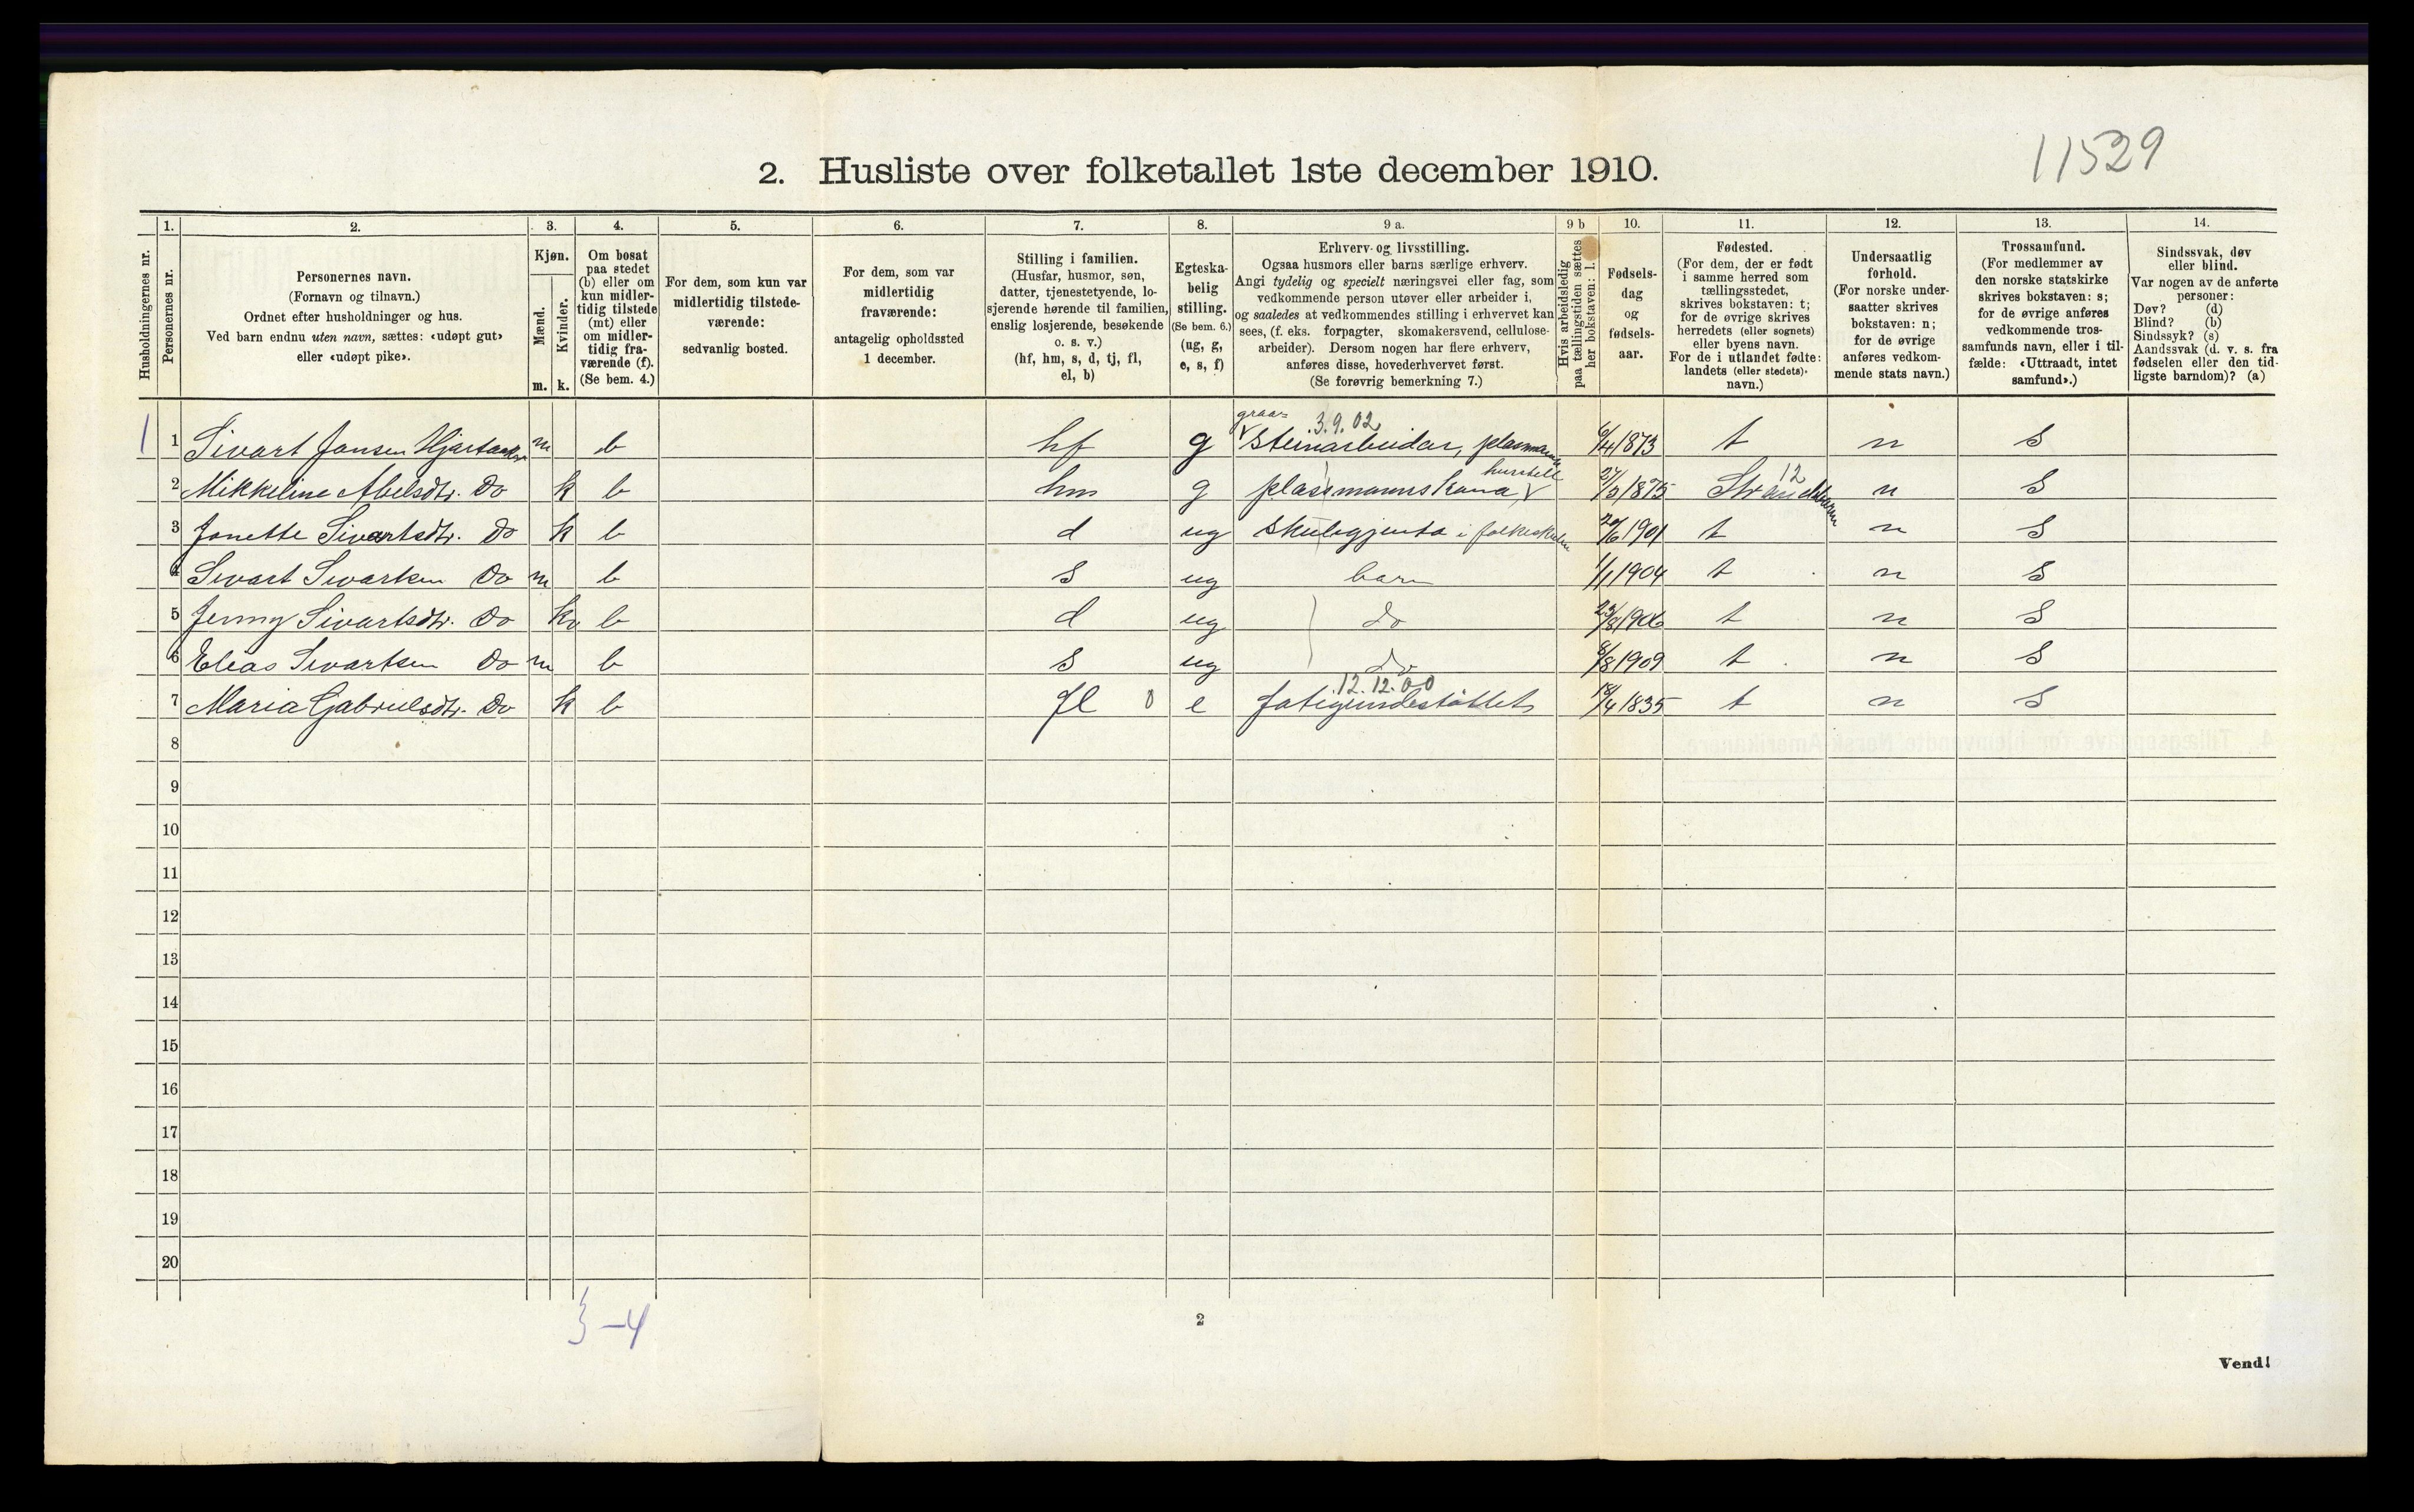 11529
2. Husliste over folketallet 1ste december 1910.
1. 2. 3. 4. 5. 6. 7. 8. 9 a. 9 b 10. 11. 12. 13. 14.
Husholdningernes nr.
Personernes nr.
Personernes navn.
(Fornavn og tilnavn.)
Ordnet efter husholdninger og hus.
Ved barn endnu uten navn, sættes: «udøpt gut»
eller «udøpt pike».
Kjøn.
Mænd.
Kvinder.
m. k.
Om bosat
paa stedet
(b) eller om
kun midler-
tidig tilstede
(mt) eller
om midler-
tidig fra-
værende (f).
(Se bem. 4.)
For dem, som kun var
midlertidig tilstede-
værende:
sedvanlig bosted.
For dem, som var
midlertidig
fraværende:
antagelig opholdssted
1 december.
Stilling i familien.
(Husfar, husmor, søn,
datter, tjenestetyende, lo-
sjerende hørende til familien,
enslig losjerende, besøkende
o. s. v.)
(hf, hm, s, d, tj, fl,
el, b)
Egteska-
belig
stilling.
(Se bem. 6.)
(ug, g,
e, s, f)
Erhverv og livsstilling.
Ogsaa husmors eller barns særlige erhverv.
Angi tydelig og specielt næringsvei eller fag, som
vedkommende person utøver eller arbeider i,
og saaledes at vedkommendes stilling i erhvervet kan
sees, (f. eks. forpagter, skomakersvend, cellulose-
arbeider). Dersom nogen har flere erhverv,
anføres disse, hovederhvervet først.
(Se forøvrig bemerkning 7.)
Hvis arbeidsledig
paa tællingstiden sættes
her bokstaven: l.
Fødsels-
dag
og
fødsels-
aar.
Fødested.
(For dem, der er født
i samme herred som
tællingsstedet,
skrives bokstaven: t;
for de øvrige skrives
herredets (eller sognets)
eller byens navn.
For de i utlandet fødte:
landets (eller stedets)
navn.)
Undersaatlig
forhold.
(For norske under-
saatter skrives
bokstaven: n;
for de øvrige
anføres vedkom-
mende stats navn.)
Trossamfund.
(For medlemmer av
den norske statskirke
skrives bokstaven: s;
for de øvrige anføres
vedkommende tros-
samfunds navn, eller i til-
fælde: «Uttraadt, intet
samfund».)
Sindssvak, døv
eller blind.
Var nogen av de anførte
personer:
Døv? (d)
Blind? (b)
Sindssyk? (s)
Aandssvak (d. v. s. fra
fødselen eller den tid-
ligste barndom)? (a)
graa= 3.9.02
1 1 Sivart Jansen m b hf g steinarbeidar, plasmann 6/4 1873 t n S
husstell 12
2 Mikkeline Abelsdtr. Do k b hm g plassmannskona 27/3 1875 n S
3 Jonette Sivartsdtr. Do k b d ug skulegjenta i folkeskulen 20/6 1901 t n S
4 Sivart Sivartsen Do m b S ug barn 1/1 1904 t n S
5 Jenny Sivartsdtr. Do k b d ug do 23/8 1906 t n S
6 Elias Sivartsen Do m b S ug do 6/8 1909 t n S
12.12.00
7 Maria Gabrielsdtr. Do k b fl 0 e 18/4 1835 t n S
8
9
10
11
12
13
14
15
16
17
18
19
20
3–4
2
Vend!